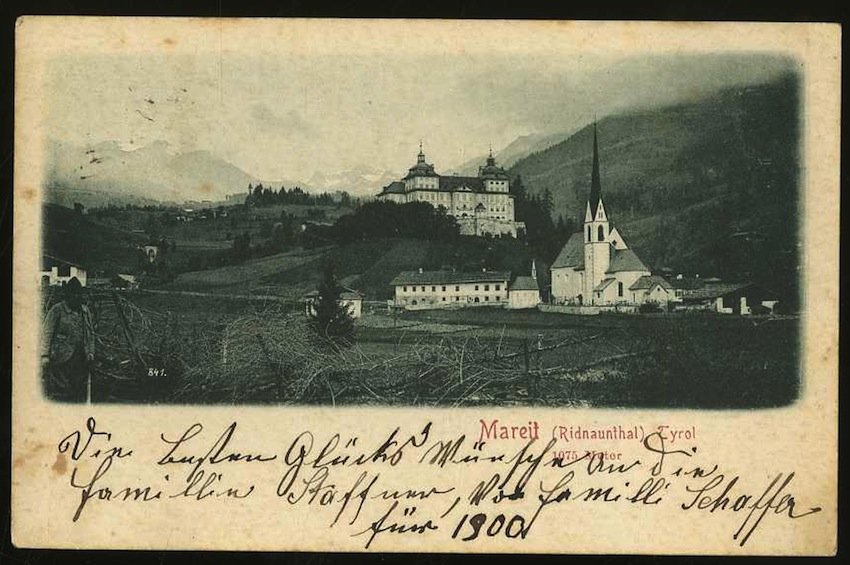 841.
Mareit (Ridnaunthal) Tyrol
1075 Meter
Die besten Glücks Wünsche an die
famillin Staffner, Von familli Schaffer
für 1900